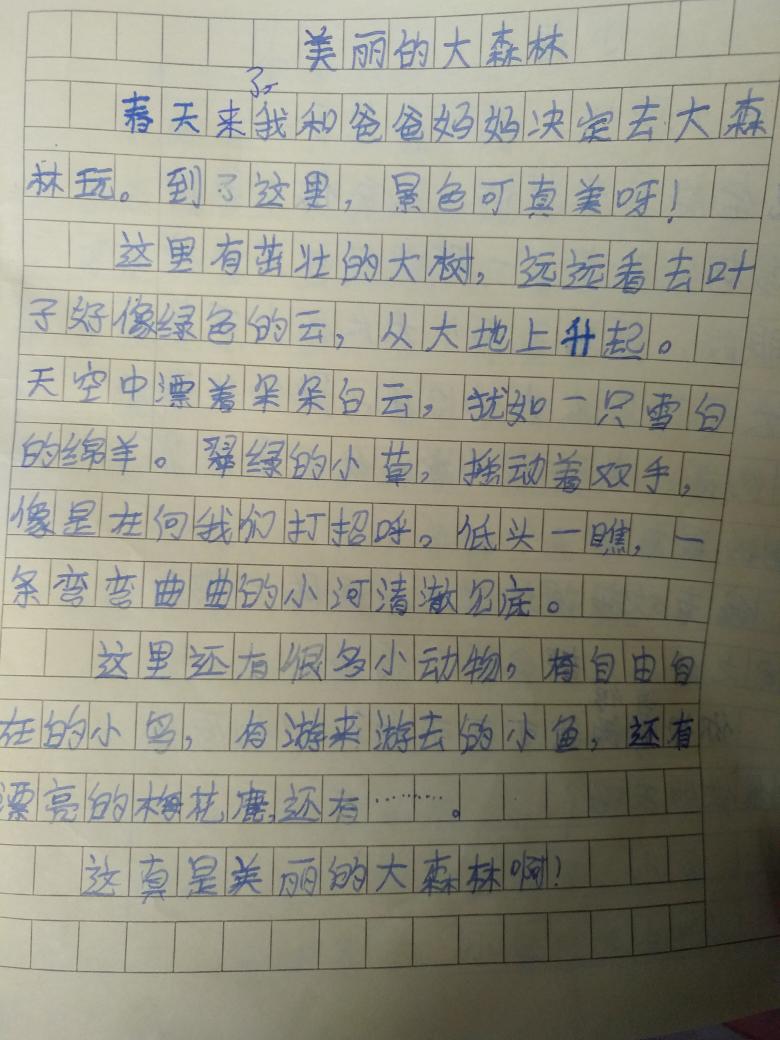 美丽的大森林
春天来了,我和爸爸妈妈决定去大森
林玩。到了这里,景色可真美呀!
这里有茁壮的大树,远远看去叶
子好像绿色的云,从大地上升起。
天空中漂着朵朵白云,犹如一只雪白
的绵羊。翠绿的小草,摇动着双手,
像是在向我们打招呼。低头一瞧,一
条弯弯曲曲的小河清澈见底。
这里还有很多小动物。有自由自
在的小鸟,有游来游去的小鱼,还有
漂亮的梅花鹿,还有………。
这真是美丽的大森林啊!